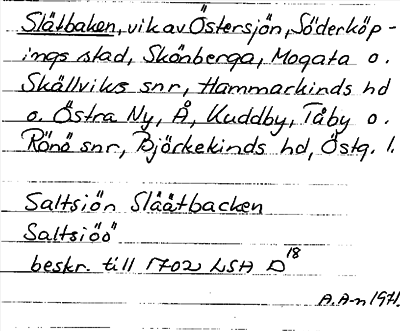 Slätbaken, vik av Östersjön, Söderköp-
ings stad, Skönberga, Mogata o.
Skällviks snr, Hammarkinds hd
o. Östra Ny, Å, Kuddby, Tåby o.
Rönö snr, Björkekinds hd, Östg. l.
Saltsiön Slåätbacken
Saltsiöö
beskr. till 1702 LSA D18
A.A-n 1971.